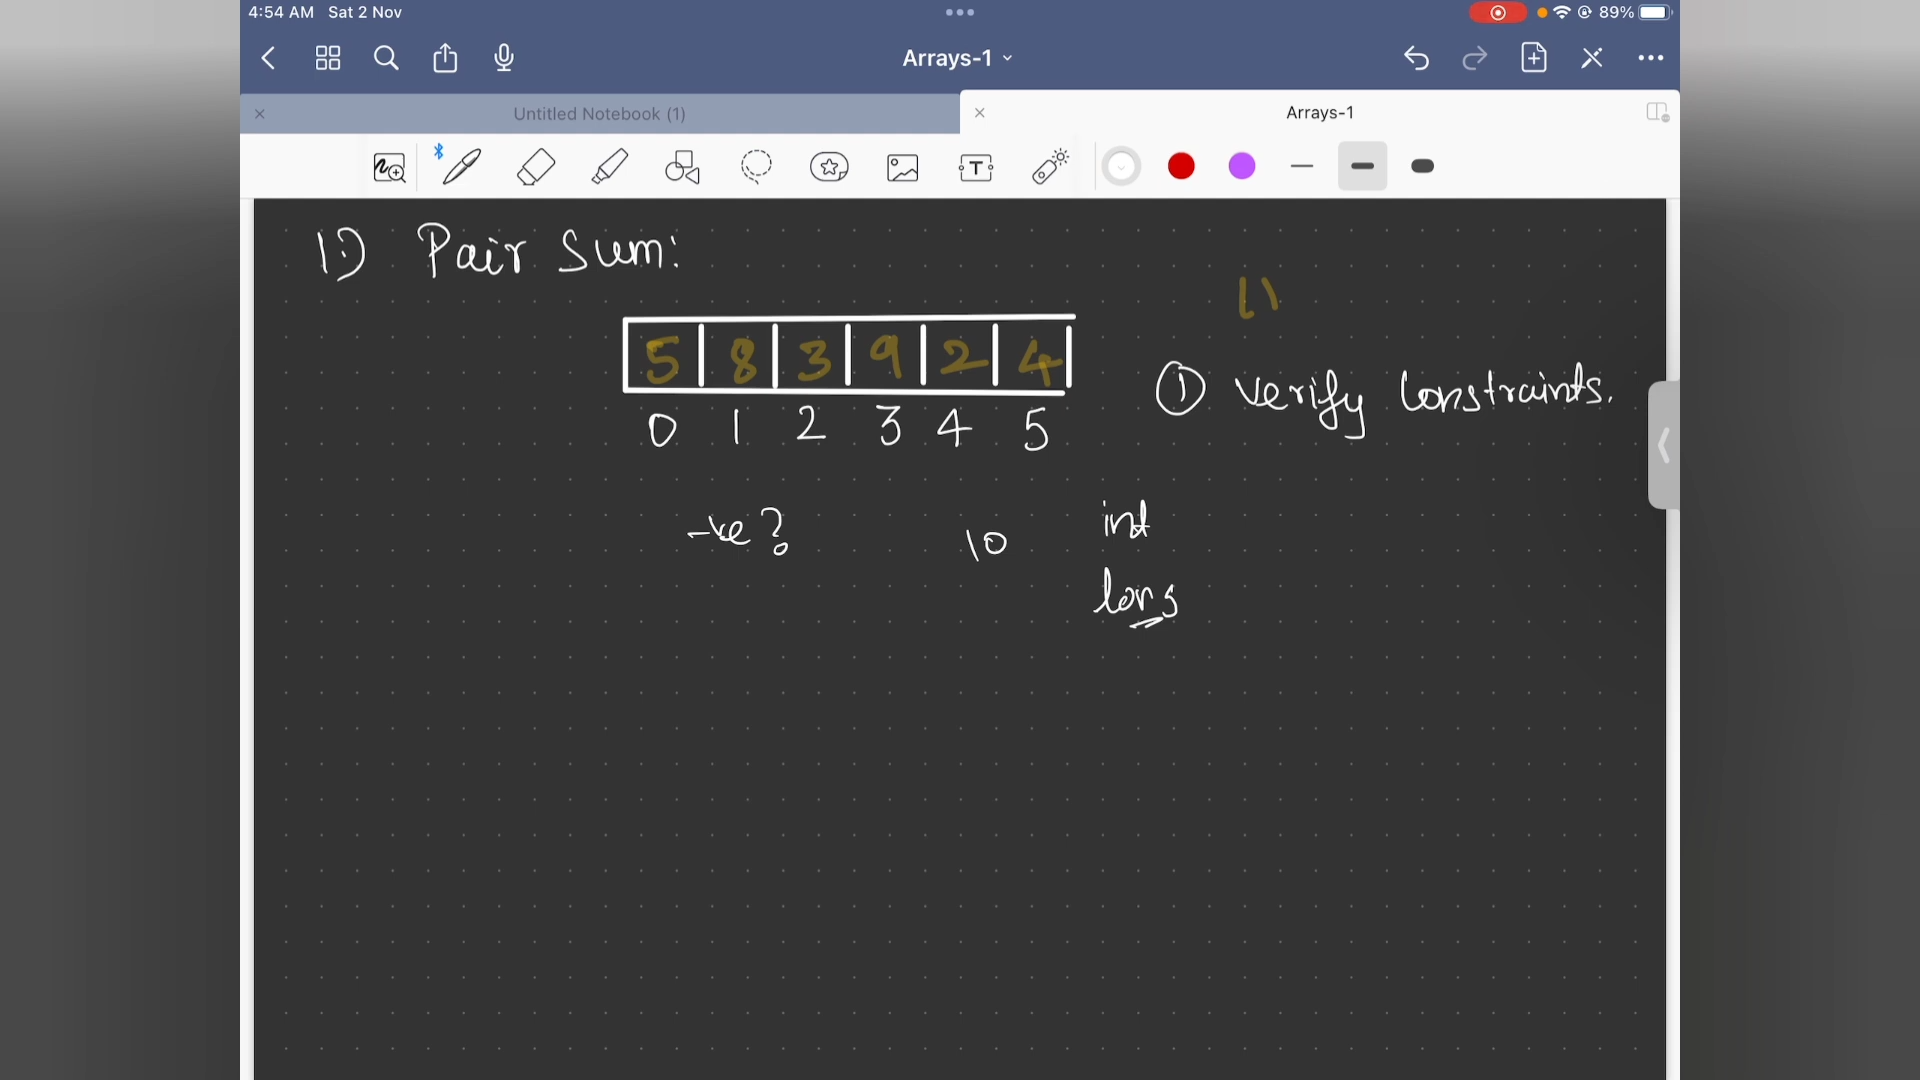 4:54 AM Sat 2 Nov
89%
Arrays-1
Untitled Notebook (1)
Arrays-1
T
1.) Pair Sum:
11
5 8 3 9 2 4
① Verify Constraints.
0 1 2 3 4 5
-ve? 10 int
long